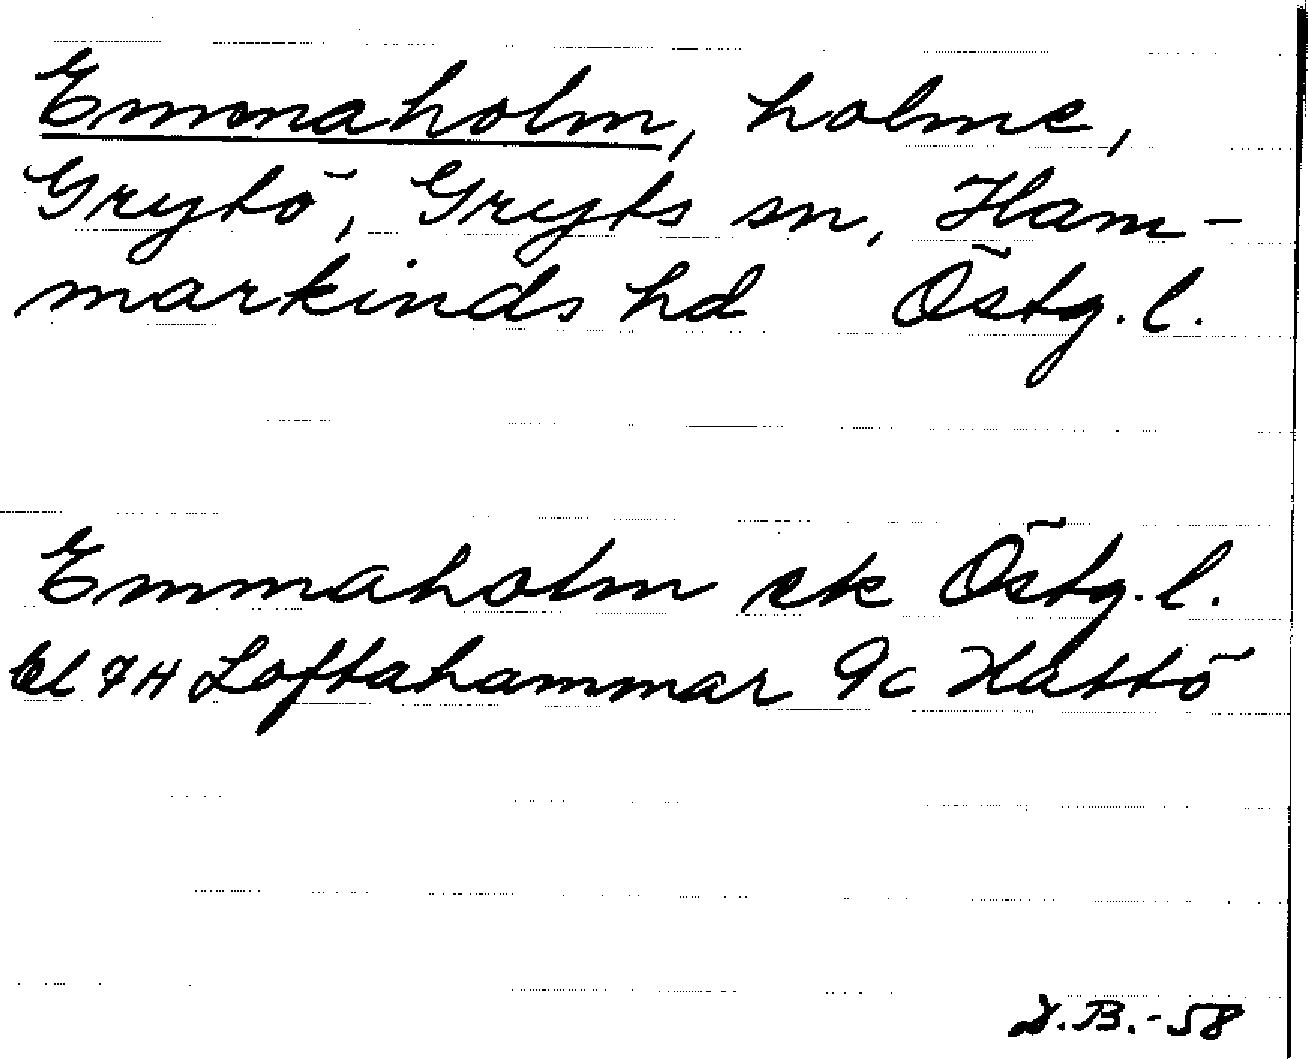 Emmaholm, holme,
Grytö, Gryts sn, Ham-
markinds hd Östg. l.
Emmaholm ek Östg. l.
bl 7H Loftahammar 9c Hattö
D.B.-58